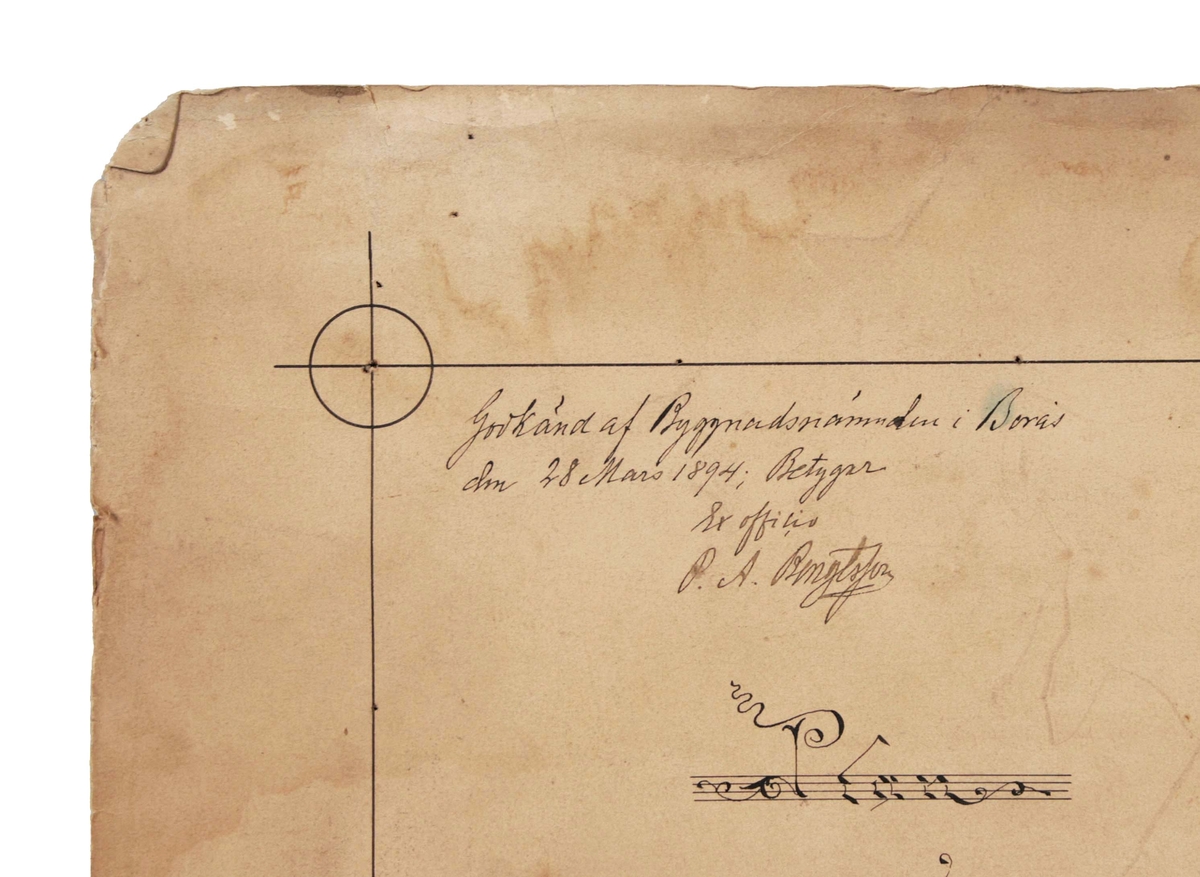 Godkänd af Byggnadsnämnden i Borås
den 28 Mars 1894; Betygar
Ex officio
P. A. Bengtsson
Plan